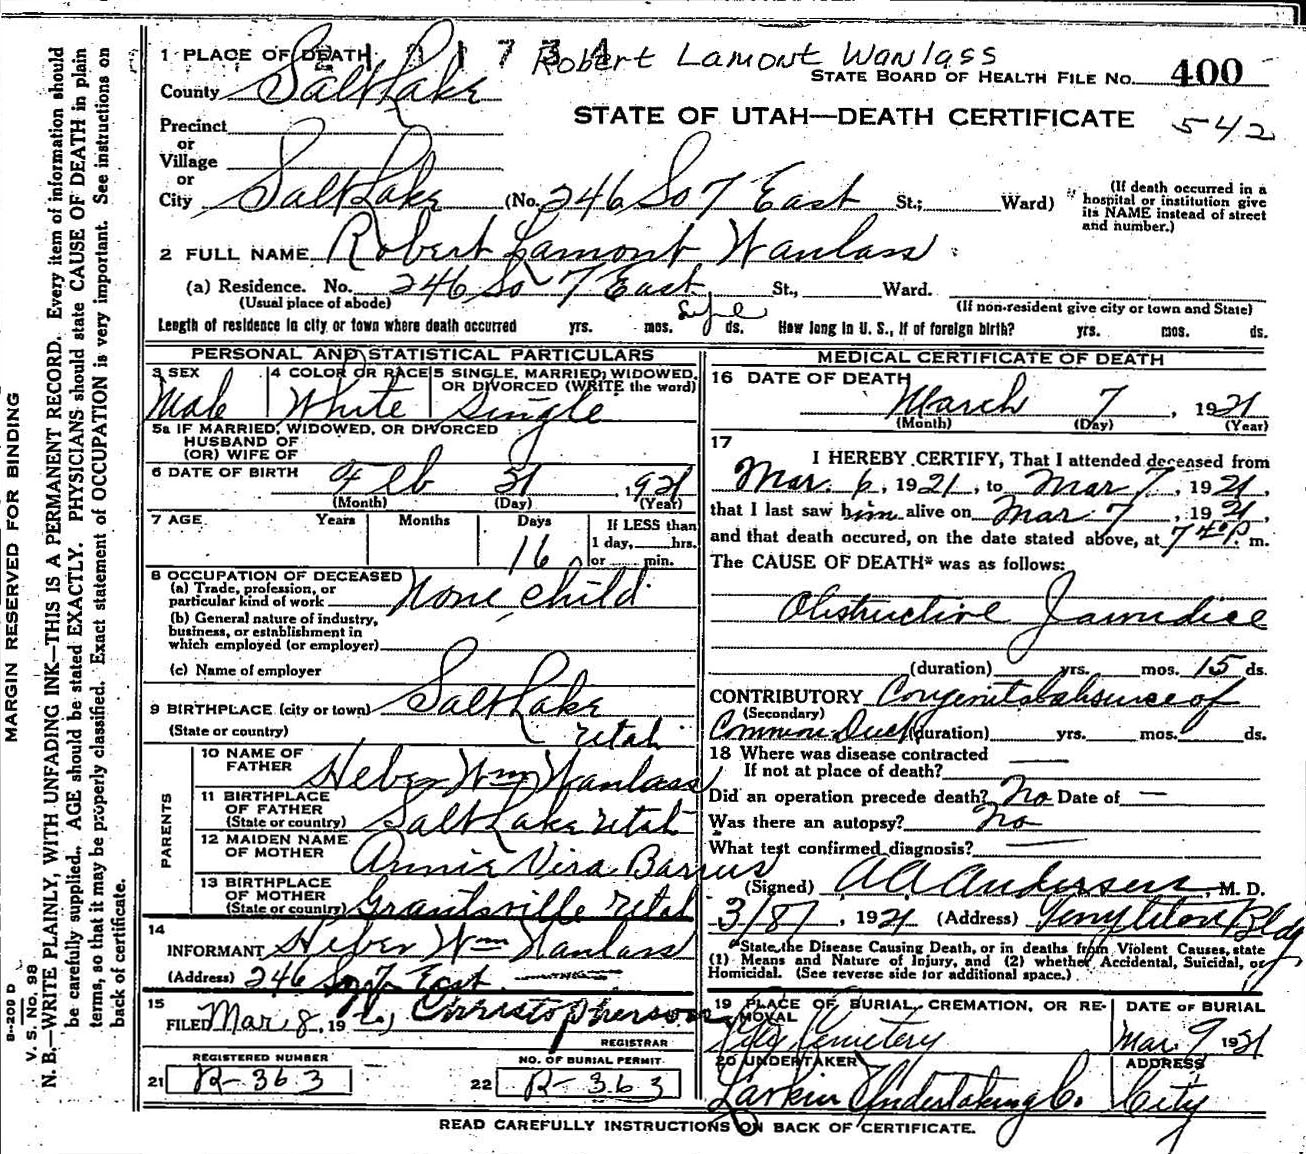 Robert Lamont Wanlass
1 PLACE OF DEATH
STATE BOARD OF HEALTH FILE No. 400
County Salt Lake
STATE OF UTAH—DEATH CERTIFICATE 542
Precinct
or
Village
or
City Salt Lake (No. 246 So 7 East St.; Ward)
(If death occurred in a
hospital or institution give
its NAME instead of street
and number.)
2 FULL NAME Robert Lamont Wanlass
(a) Residence. No. 246 So 7 East St., Ward.
(Usual place of abode) (If non-resident give city or town and State)
Length of residence in city or town where death occurred yrs. mos. ds. How long in U. S., if of foreign birth? yrs. mos. ds.
PERSONAL AND STATISTICAL PARTICULARS
3 SEX Male
4 COLOR OR RACE White
5 SINGLE, MARRIED, WIDOWED,
OR DIVORCED (WRITE the word)
Single
5a IF MARRIED, WIDOWED, OR DIVORCED
HUSBAND OF
(OR) WIFE OF
6 DATE OF BIRTH Feb 21, 1921
(Month) (Day) (Year)
7 AGE Years Months Days 16
If LESS than
1 day, hrs.
or min.
8 OCCUPATION OF DECEASED
(a) Trade, profession, or
particular kind of work None, child
(b) General nature of industry,
business, or establishment in
which employed (or employer)
(c) Name of employer
9 BIRTHPLACE (city or town) Salt Lake
(State or country) Utah
PARENTS
10 NAME OF
FATHER Heber Wm Wanlass
11 BIRTHPLACE
OF FATHER
(State or country) Salt Lake Utah
12 MAIDEN NAME
OF MOTHER Annie Vira Barrus
13 BIRTHPLACE
OF MOTHER
(State or country) Grantsville Utah
14
INFORMANT Heber Wm Wanlass
(Address) 246 So 7 East
15
FILED Mar 8, 19 Christopherson
REGISTRAR
REGISTERED NUMBER
21 R-363
NO. OF BURIAL PERMIT
22 R-363
MEDICAL CERTIFICATE OF DEATH
16 DATE OF DEATH
March 7, 1921
(Month) (Day) (Year)
17
I HEREBY CERTIFY, That I attended deceased from
Mar. 6, 1921, to Mar 7, 1921,
that I last saw him alive on Mar. 7, 1921,
and that death occured, on the date stated above, at 7 40 P m.
The CAUSE OF DEATH* was as follows:
Obstructive Jaundice
(duration) yrs. mos. 15 ds.
CONTRIBUTORY Congenital absence of
(Secondary)
Common Duct (duration) yrs. mos. ds.
18 Where was disease contracted
If not at place of death?
Did an operation precede death? No Date of —
Was there an autopsy? No
What test confirmed diagnosis?
(Signed) A A Andersen, M. D.
3/8/, 1921 (Address) Templeton Bldg
*State the Disease Causing Death, or in deaths from Violent Causes, state
(1) Means and Nature of Injury, and (2) whether Accidental, Suicidal, or
Homicidal. (See reverse side for additional space.)
19 PLACE OF BURIAL, CREMATION, OR RE-
MOVAL
City Cemetery
DATE OF BURIAL
Mar. 9 1921
20 UNDERTAKER
Larkin Undertaking Co.
ADDRESS
City
READ CAREFULLY INSTRUCTIONS ON BACK OF CERTIFICATE.
MARGIN RESERVED FOR BINDING
B—200 D
V. S. No. 98
N. B.—WRITE PLAINLY, WITH UNFADING INK—THIS IS A PERMANENT RECORD. Every item of information should
be carefully supplied. AGE should be stated EXACTLY. PHYSICIANS should state CAUSE OF DEATH in plain
terms, so that it may be properly classified. Exact statement of OCCUPATION is very important. See instructions on
back of certificate.